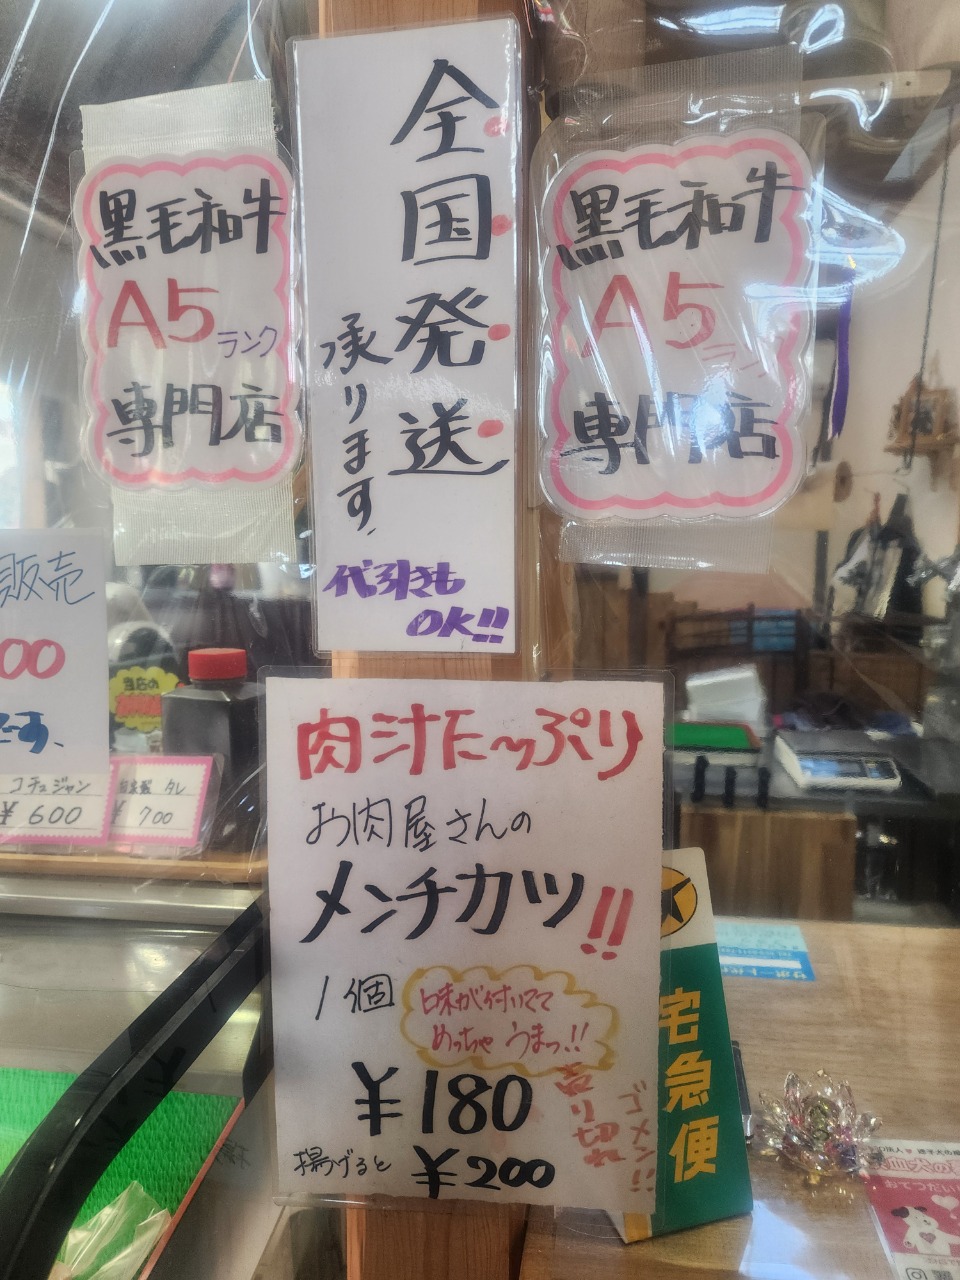 黒毛和牛
A5ランク
専門店
全国発送
承ります。
代引きも
OK!!
黒毛和牛
A5ラン
専門店
販売
00
です、
当店の
コチュジャン
¥600
自家製 タレ
¥700
肉汁たっぷり
お肉屋さんの
メンチカツ!!
1個
味が付いてて
めっちゃ うまっ!!
¥180
揚げると ¥200
売り切れ
ゴメン!!
宅急便
サポート
おてつだい